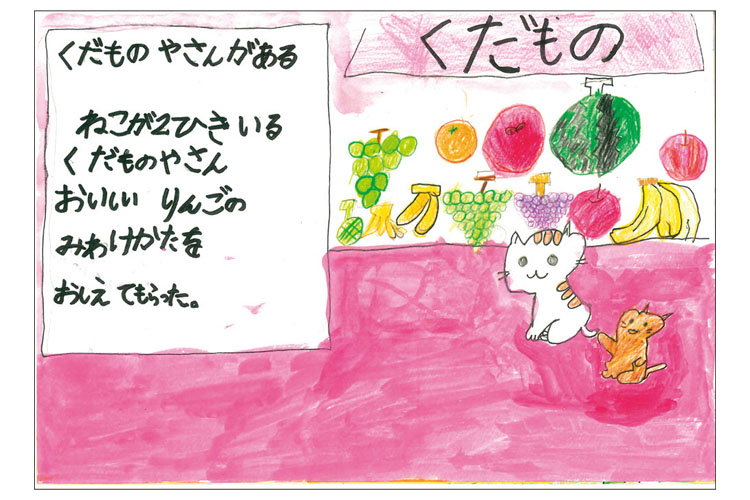 くだもの やさんがある
ねこが2ひきいる
くだものやさん
おいしい りんごの
みわけかたを
おしえてもらった。
くだもの